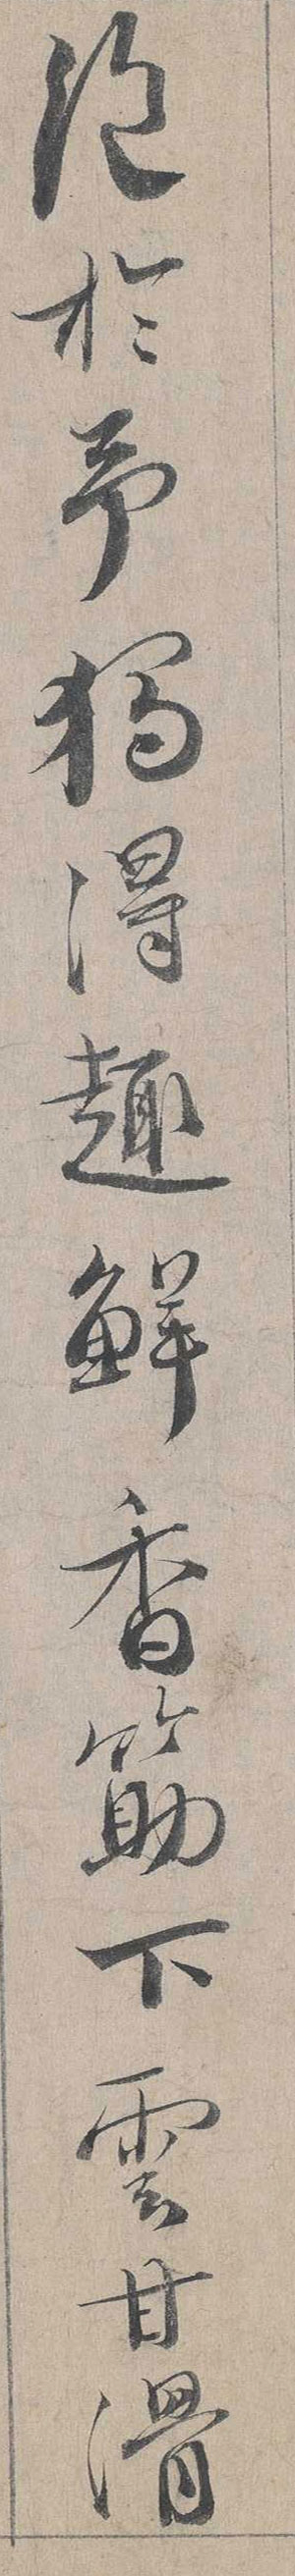 絕於予獨得趣鮮香筯下雲甘滑